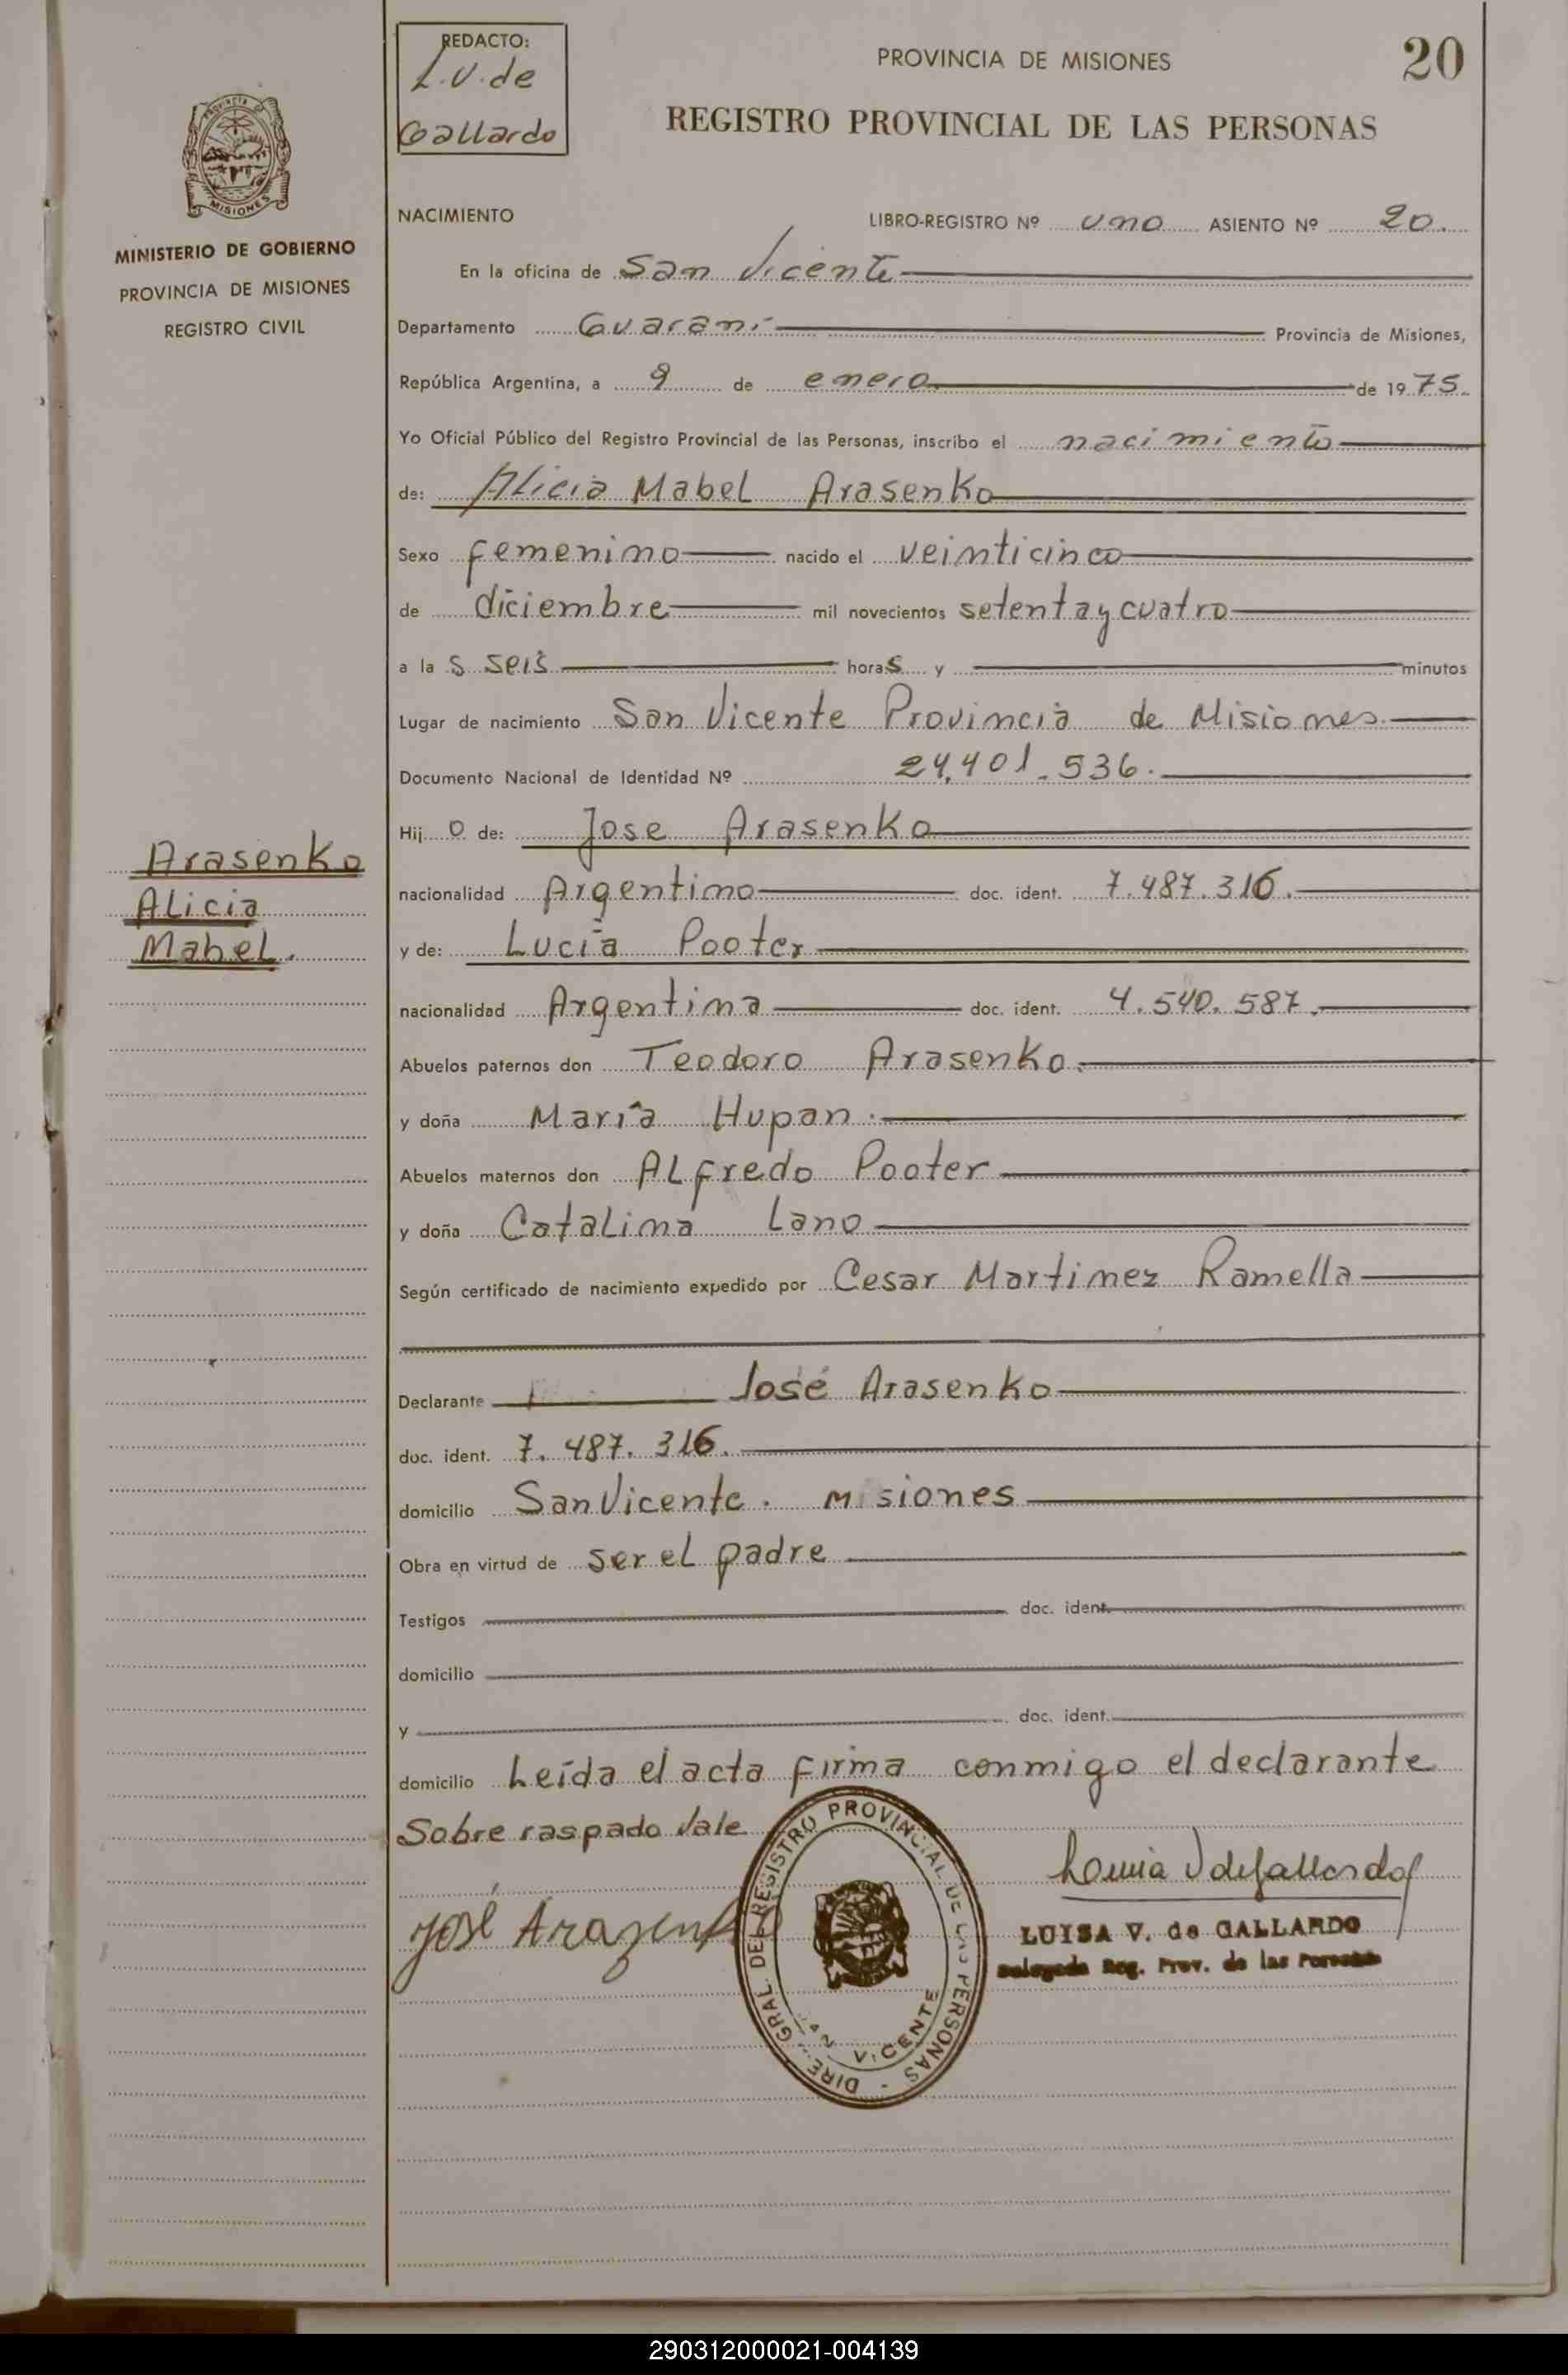 REDACTO:
L.V. de
Gallardo
PROVINCIA DE MISIONES
20
REGISTRO PROVINCIAL DE LAS PERSONAS
MISIONES
MINISTERIO DE GOBIERNO
PROVINCIA DE MISIONES
REGISTRO CIVIL
NACIMIENTO
LIBRO-REGISTRO Nº uno ASIENTO Nº 20.
En la oficina de San Vicente
Departamento Guaraní Provincia de Misiones,
República Argentina, a 9 de enero de 1975.
Yo Oficial Público del Registro Provincial de las Personas, inscribo el nacimiento
de: Alicia Mabel Arasenko
Sexo femenino nacido el veinticinco
de diciembre mil novecientos setenta y cuatro
a las seis horas y minutos
Lugar de nacimiento San Vicente Provincia de Misiones.
Documento Nacional de Identidad Nº 24.401.536.
Hijo de: Jose Arasenko
Arasenko
Alicia
Mabel.
nacionalidad Argentino doc. ident. 7.487.316.
y de: Lucía Pooter
nacionalidad Argentina doc. ident. 4.540.587.
Abuelos paternos don Teodoro Arasenko.
y doña María Hupan.
Abuelos maternos don Alfredo Pooter
y doña Catalina Lano
Según certificado de nacimiento expedido por Cesar Martinez Ramella
Declarante José Arasenko
doc. ident. 7.487.316.
domicilio San Vicente. Misiones
Obra en virtud de ser el padre
Testigos doc. ident.
domicilio
y doc. ident.
domicilio Leída el acta firma conmigo el declarante
Sobre raspado Vale
José Arazenko
DIRE. GRAL. DEL REGISTRO PROVINCIAL DE LAS PERSONAS -
SAN VICENTE
LUISA V. de GALLARDO
Delegada Reg. Prov. de las Personas
290312000021-004139